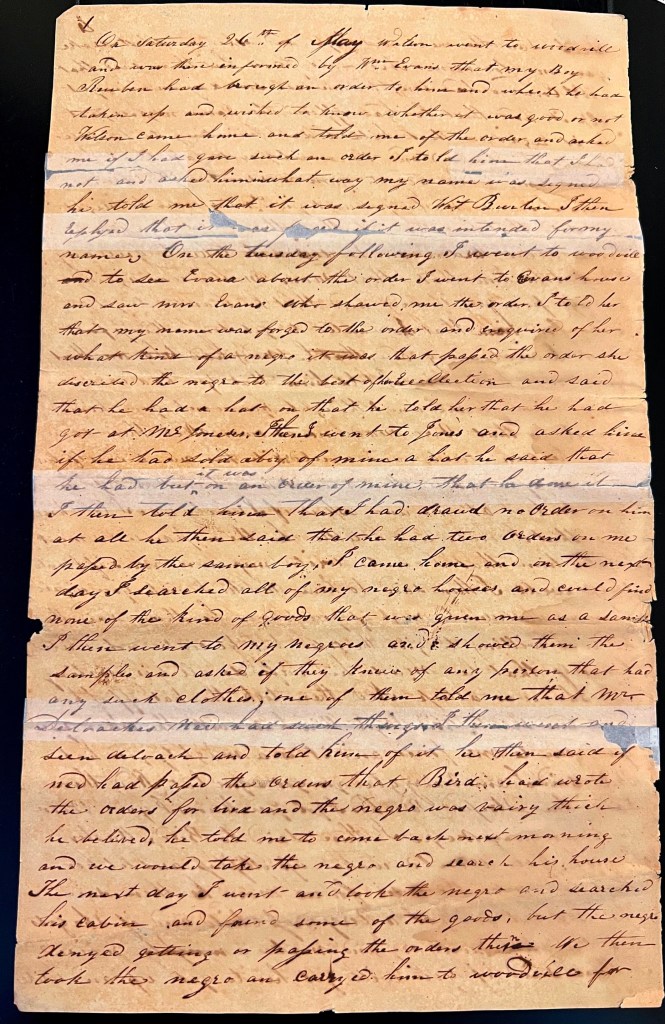 1
On Saturday 26th of May Watson went to woodvill
and was there informed by Wm Evans that my Boy
Reuben had brough an order to him and which he had
taken up and wished to know whether it was good or not
Watson came home and told me of the order and asked
me if I had gave such an order I told him that I had
not and asked him what way my name was signed
he told me that it was signed Wat Burton I then
replyed that it was forged if it was intended for my
name, On the tuesday following I went to woodvill
and to see Evans about the order I went to Evans house
and saw mrs Evans who shawed me the order I told her
that my name was forged to the order and enquired of her
what kind of a negro it was that passed the order she
discribed the negro to the best of her Recollection and said
that he had a hat on that he told her that he had
got at Mr Joneses, I then went to Jones and asked him
if he had sold a boy of mine a hat he said that
he had but it was on an order of mine, that he done it
I then told him that I had drawd no order on him
at all he then said that he had two orders on me
passed by the same boy, I came home and on the next
day I searched all of my negro houses and could find
none of the kind of goods that was given me as a sample
I then went to my negroes and showed them the
samples and asked if they knew of any person that had
any such clothes, one of them told me that Mr
Deloaches Ned had such things I then went and
seen deloach and told him of it he then said if
ned had passed the orders that Bird had wrote
the orders for bird and the negro was vairy thick
he belived, he told me to come back next morning
and we would take the negro and search his house
The next day I went and took the negro and searched
his cabin and found some of the goods, but the negro
denyed getting or passing the orders then We then
took the negro an carryed him to woodville for